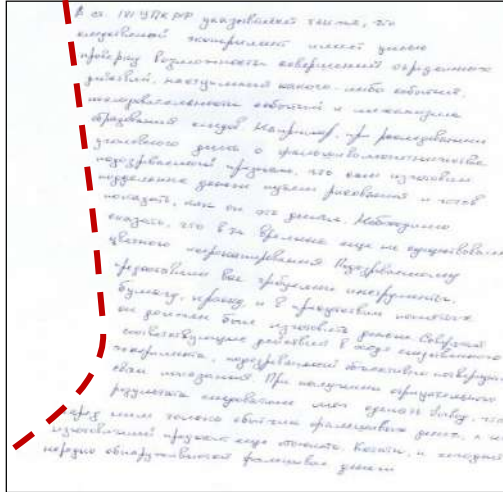 В ст. 181 УПК РФ указывается также, что
следственный эксперимент имеет целью
проверку возможности совершения определенных
действий, наступления какого-либо события,
последовательности событий и механизма
образования следов. Например, при расследовании
уголовного дела о фальшивомонетничестве
подозреваемый признал, что сам изготовил
поддельные деньги путем рисования и готов
показать, как он это делал. Необходимо
сказать, что в те времена еще не существовало
цветного ксерокопирования. Подозреваемому
предоставили все требуемые инструменты,
бумагу, краску, и в присутствии понятых
он должен был изготовить деньги. Совершая
соответствующие действия в ходе следственного
эксперимента, подозреваемый объективно подтвердил
свои показания. При получении отрицательного
результата следователь мог сделать вывод, что
перед ним только сбытчик фальшивых денег, а не
изготовитель
нередко обнаруживаются фальшивые деньги